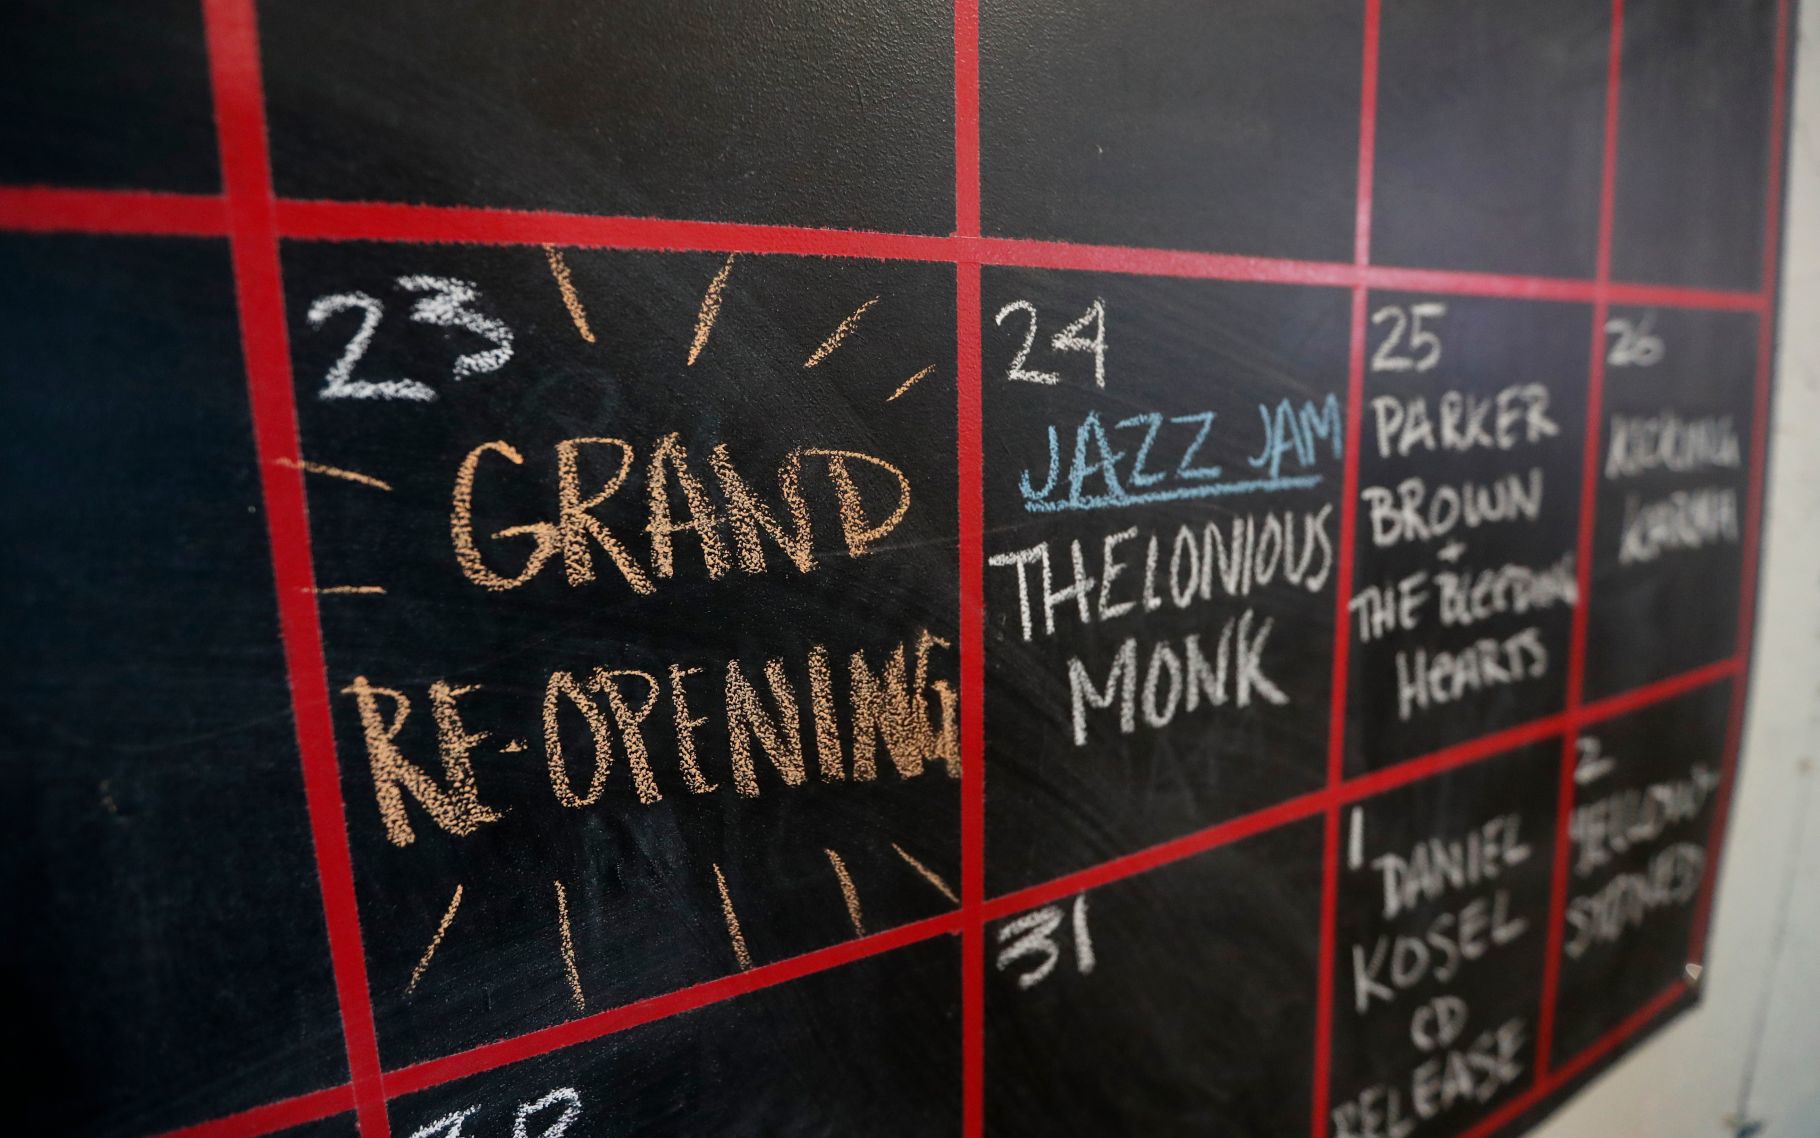 23
GRAND
RE-OPENING
24
JAZZ JAM
THELONIOUS
MONK
25
PARKER
BROWN
+
THE BLEEDING
HEARTS
26
KICKING
KARMA
30
31
1
DANIEL
KOSEL
CD
RELEASE
2